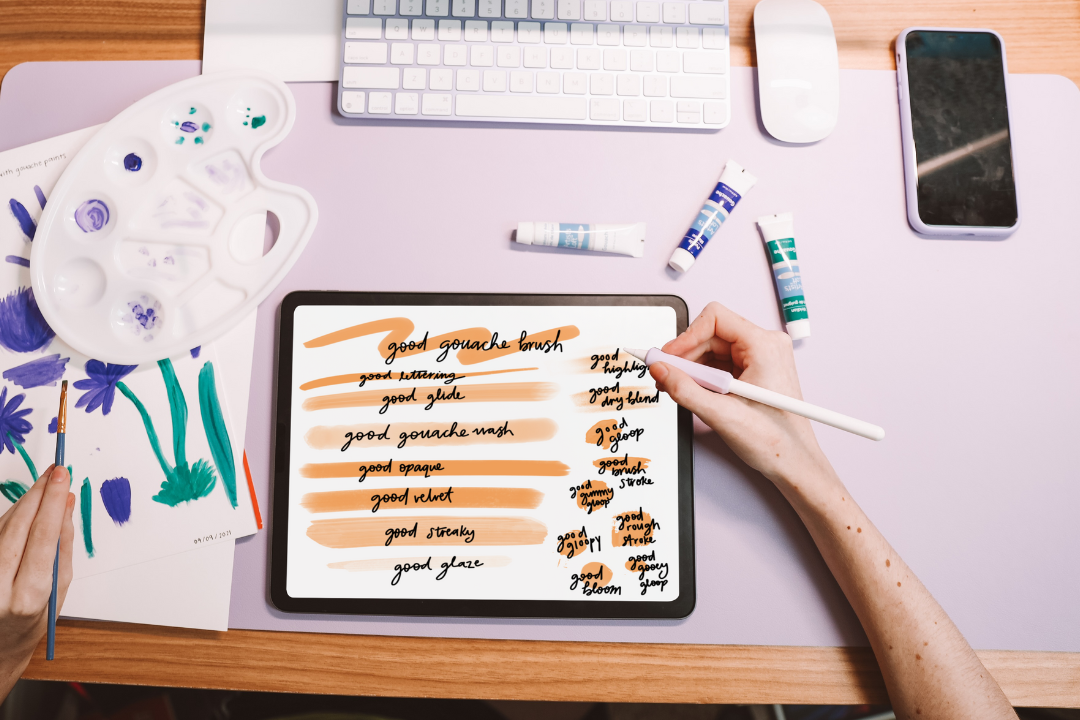 with gouache paints
good gouache brush
good lettering
good glide
good gouache wash
good opaque
good velvet
good streaky
good glaze
good
dry blend
good
gloop
good
brush
stroke
good
gummy
gloop
good
rough
stroke
good
gloopy
good
gooey
gloop
good
bloom
good
highlig
09/09/2021
Gouache